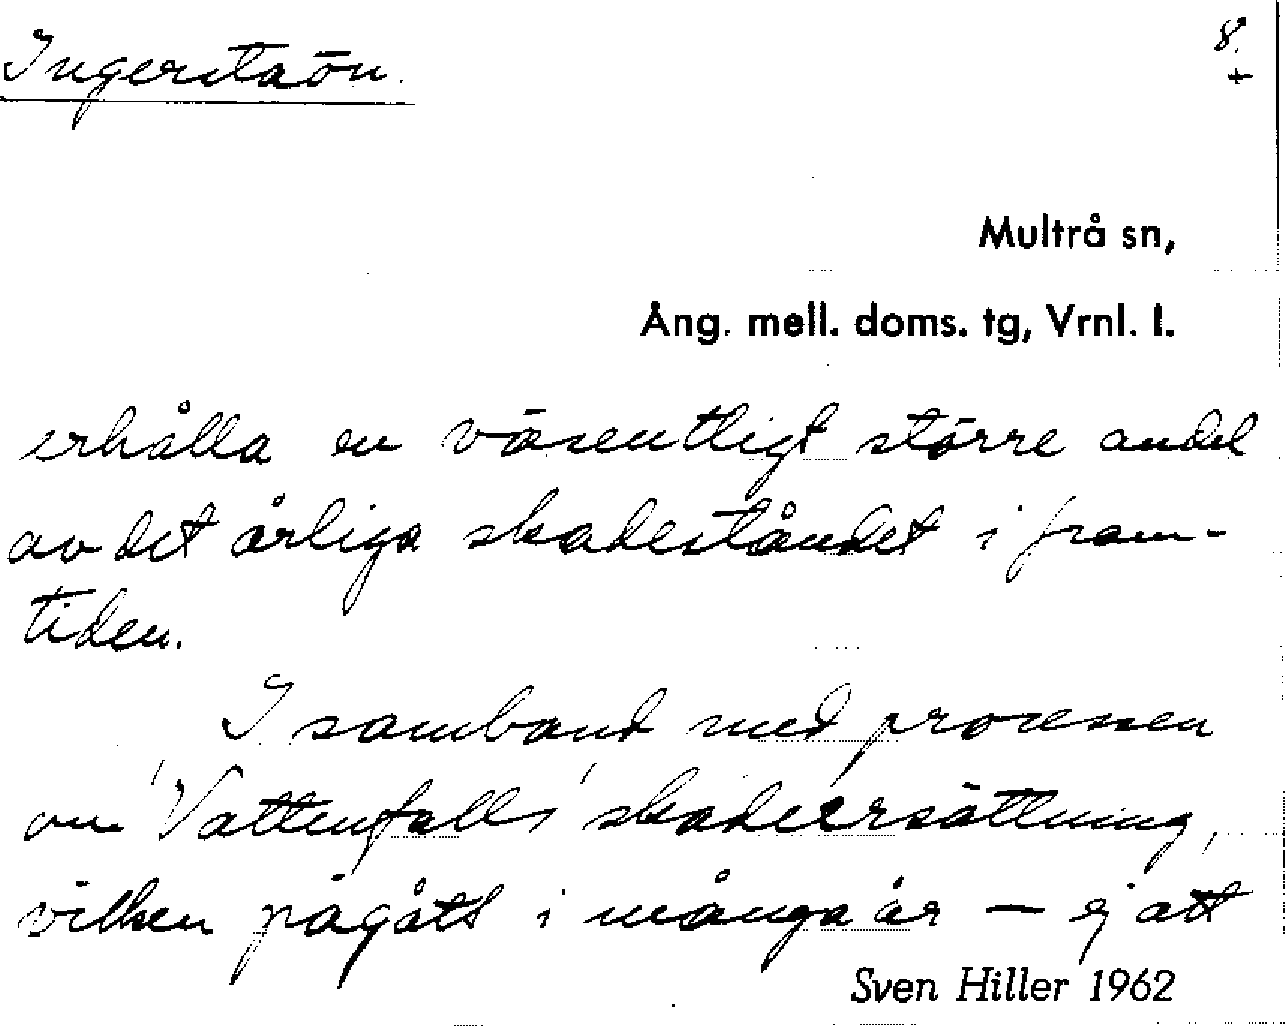 Ingerstaön.
8.
+
Multrå sn,
Ång. mell. doms. tg, Vrnl. l.
erhålla en väsentligt större andel
av det årliga skadeståndet i fram-
tiden.
I samband med processen
om Vattenfalls skadeersättning,
vilken pågått i många år – ej att
Sven Hiller 1962